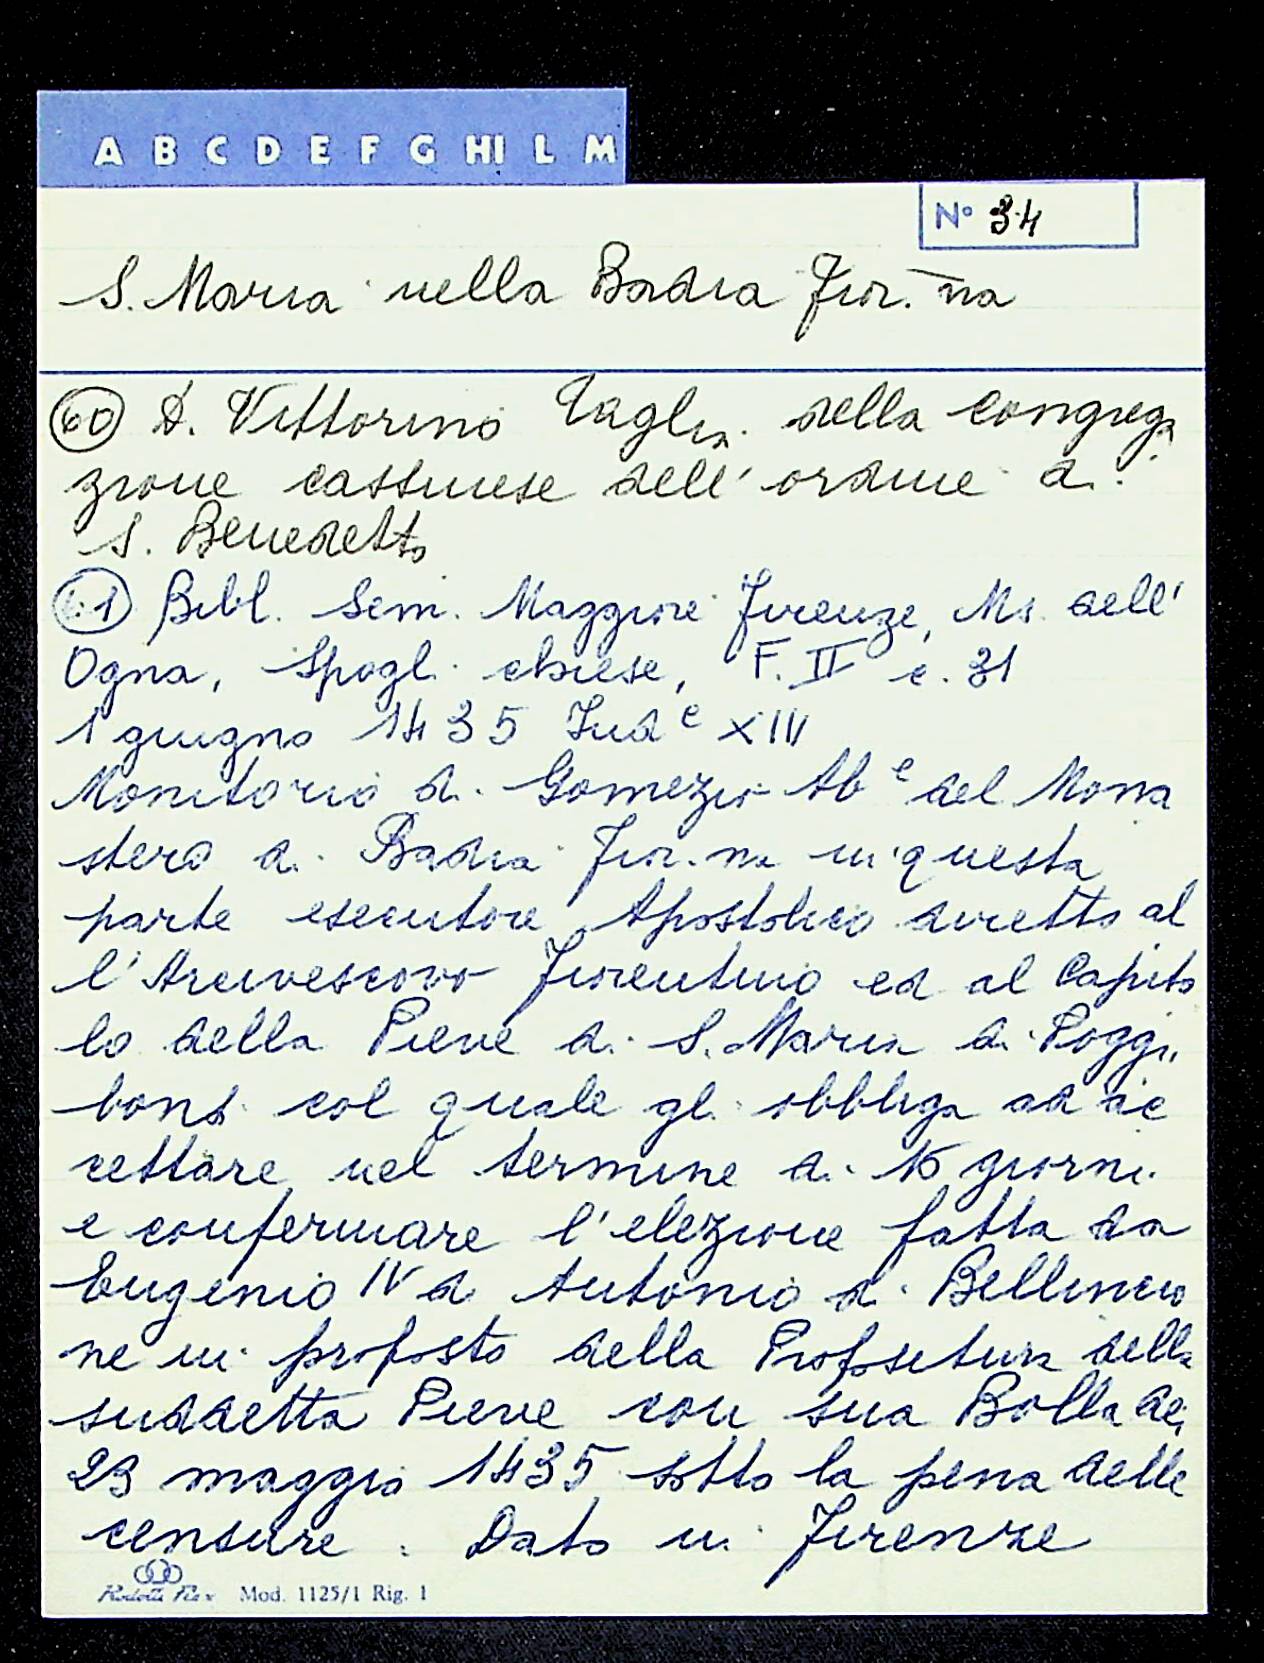 A B C D E F G HI L M
N° 34
S. Maria nella Badia Fior.na
60 D. Vittorino Taglia. della congrega
zione cassinese dell'ordine di
S. Benedetto
61 Bibl. Sem. Maggiore Firenze, Ms. dell'
Ogna, Spogl. chiese, F. II c. 31
1 giugno 1435 Ind e XIV
Monitorio di Gomezio Ab e del Mona
stero di Badia Fior.na in questa
parte esecutore Apostolico diretto al
l'Arcivescovo Fiorentino ed al Capito
lo della Pieve di S. Maria di Poggi
bonsi col quale gli obbliga ad ac
cettare nel termine di 15 giorni
e confermare l'elezione fatta da
Eugenio IV di Antonio di Bellincio
ne in proposto della Propositura della
suddetta Pieve con sua Bolla dei
23 maggio 1435 sotto la pena delle
censure. Dato in Firenze
Mod. 1125/1 Rig. 1